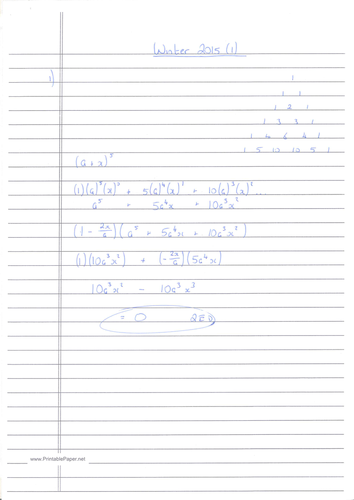 Winter 2015 (1)
1)
1
1 1
1 2 1
1 3 3 1
1 4 6 4 1
1 5 10 10 5 1
(a + x)⁵
(1)(a)⁵(x)⁰ + 5(a)⁴(x)¹ + 10(a)³(x)² ...
a⁵ + 5a⁴x + 10a³x²
(1 - 2x/a)(a⁵ + 5a⁴x + 10a³x²)
(1)(10a³x²) + (-2x/a)(5a⁴x)
10a³x² - 10a³x²
= 0
www.PrintablePaper.net